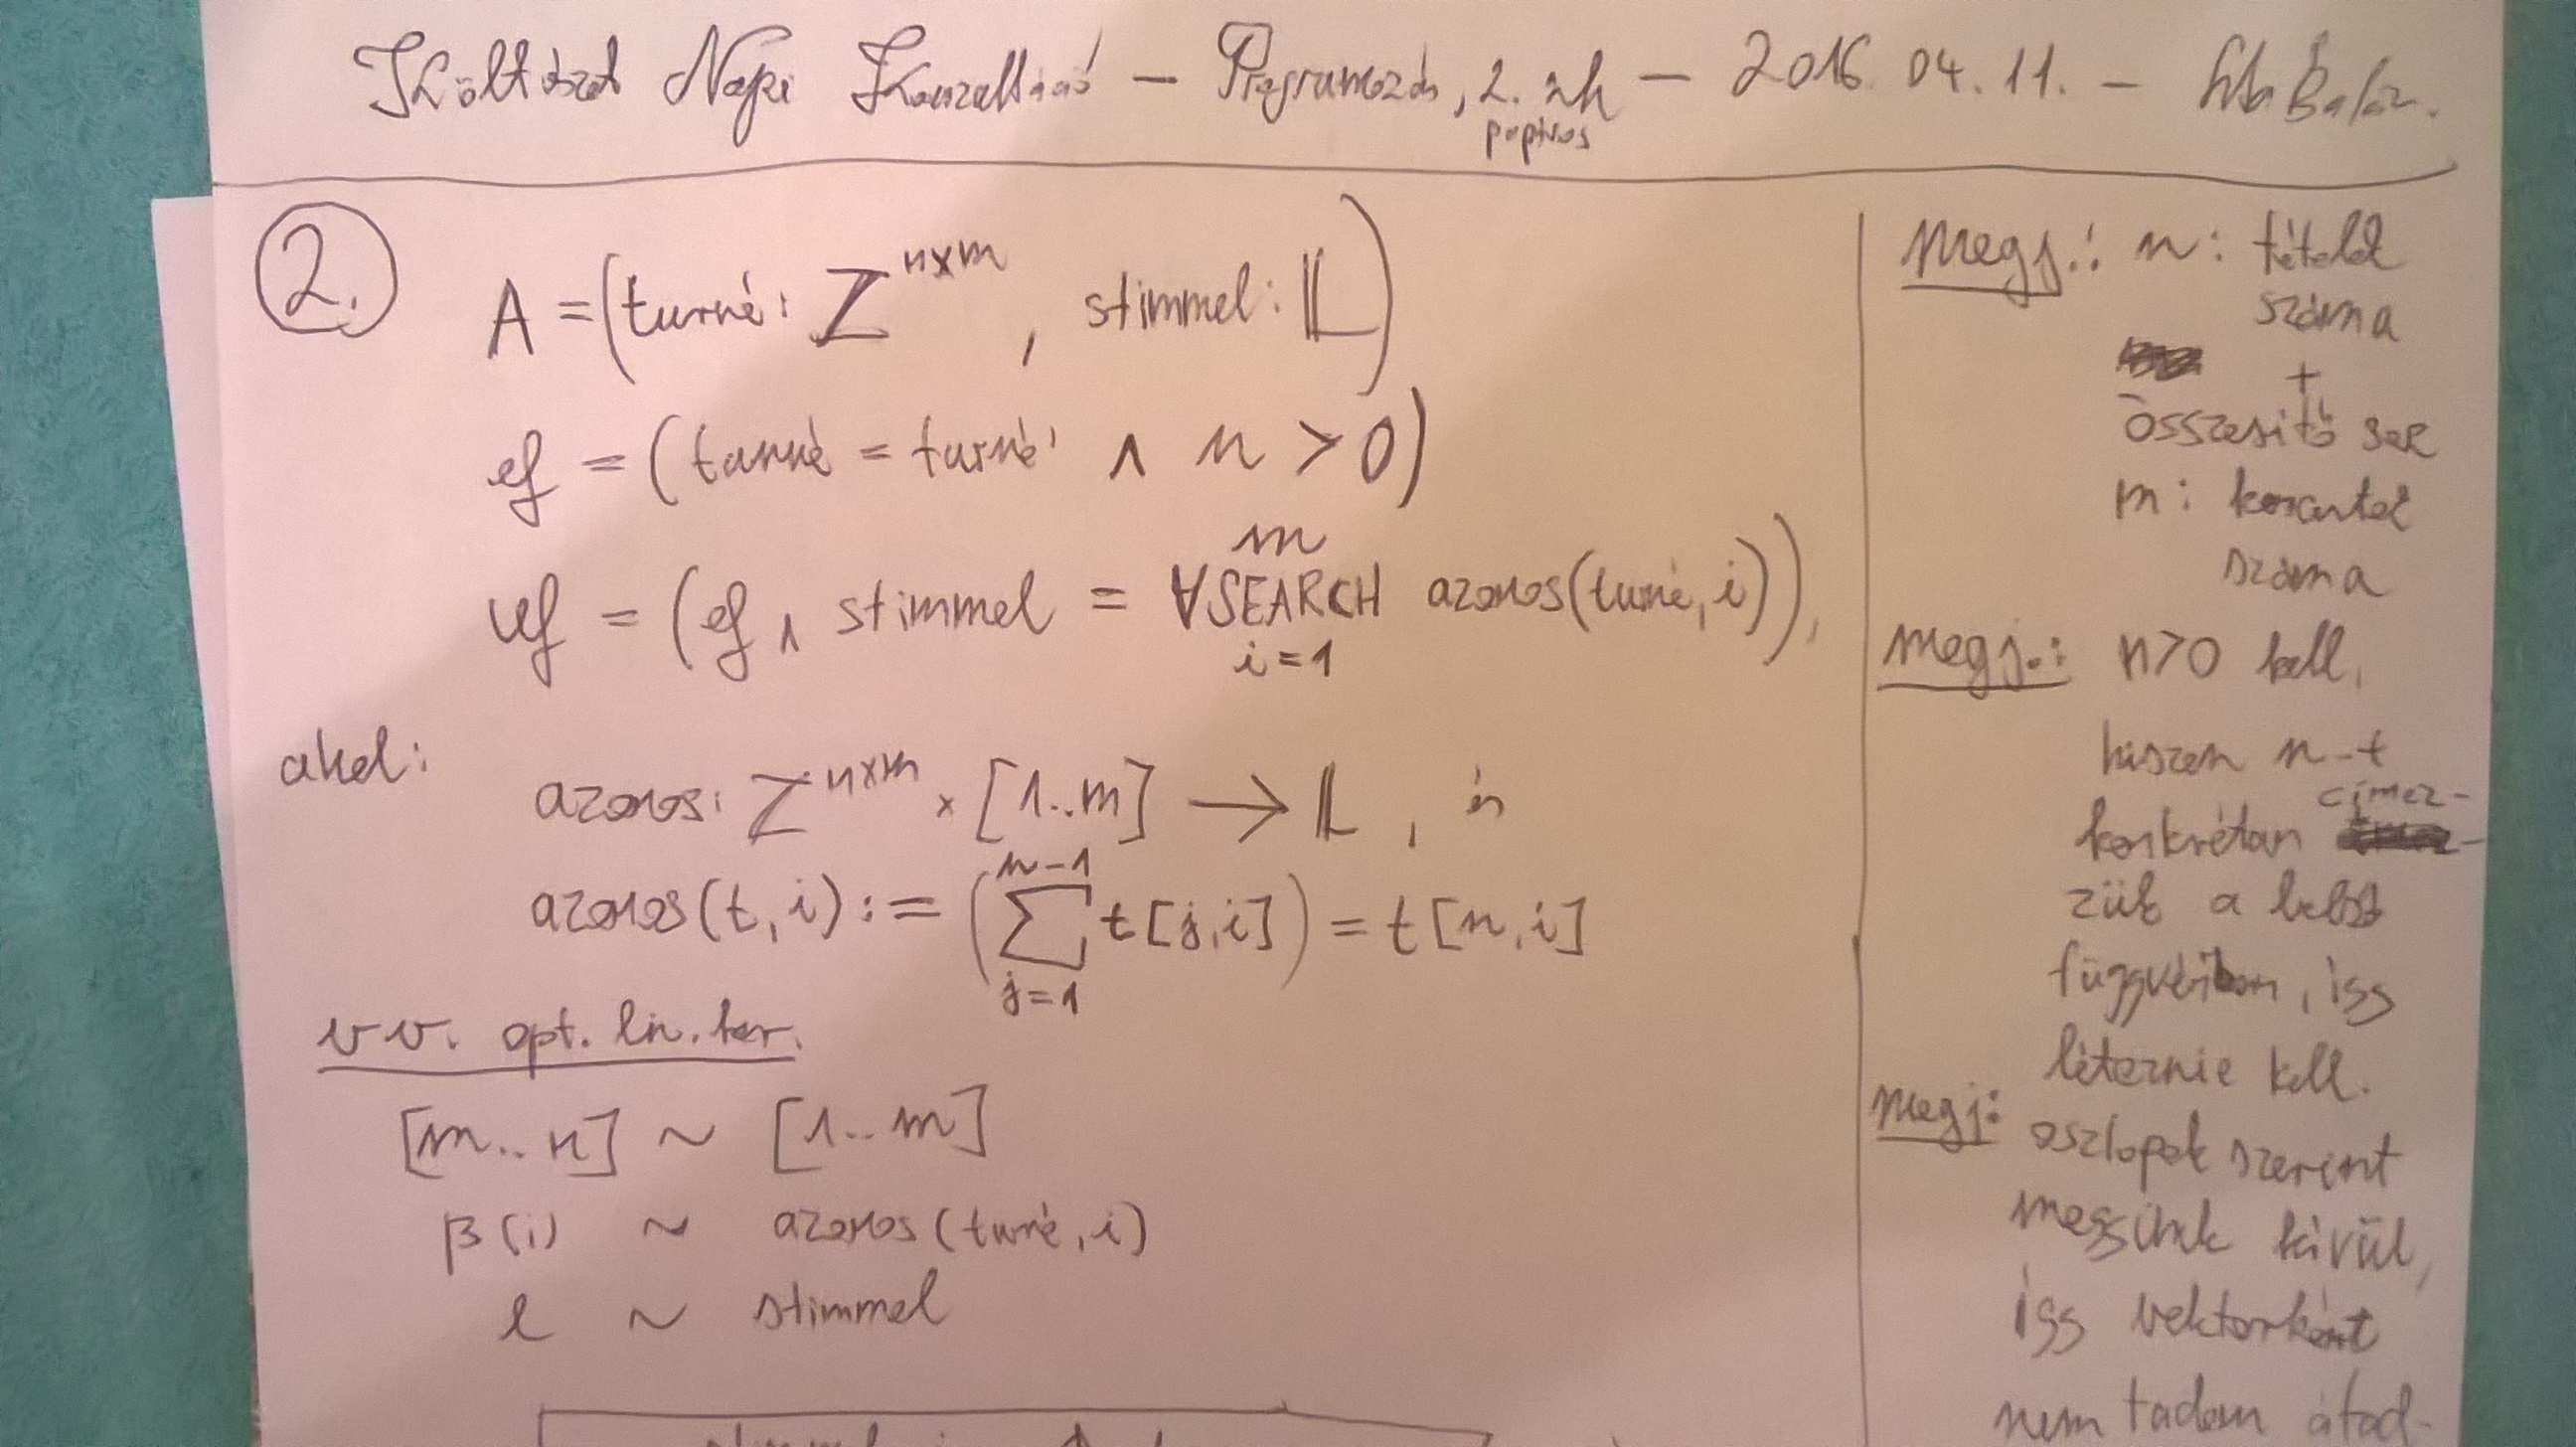 Költészet Napi Konzultáció – Programozás, 2. zh – 2016. 04. 11. –
papíros
2.
A = (turné: ℤⁿˣᵐ, stimmel: 𝕃)
ef = (turné = turné' ∧ n > 0)
m
uf = (ef ∧ stimmel = ∀SEARCH azonos(turné, i)),
i = 1
ahol:
azonos: ℤⁿˣᵐ × [1..m] → 𝕃, és
n-1
azonos(t, i) := (∑ t[j,i]) = t[n,i]
j=1
v v. opt. lin. ker.
[m..n] ~ [1..m]
β(i) ~ azonos(turné, i)
l ~ stimmel
Megj.: n: tételek
száma
+
összesítő sor
m: koncertek
száma
Megj.: n>0 kell,
hiszen n-t
konkrétan címez-
zük a belső
függvényben, így
léteznie kell.
Megj: oszlopok szerint
megyünk kívül,
így vektorként
nem tudom átad-